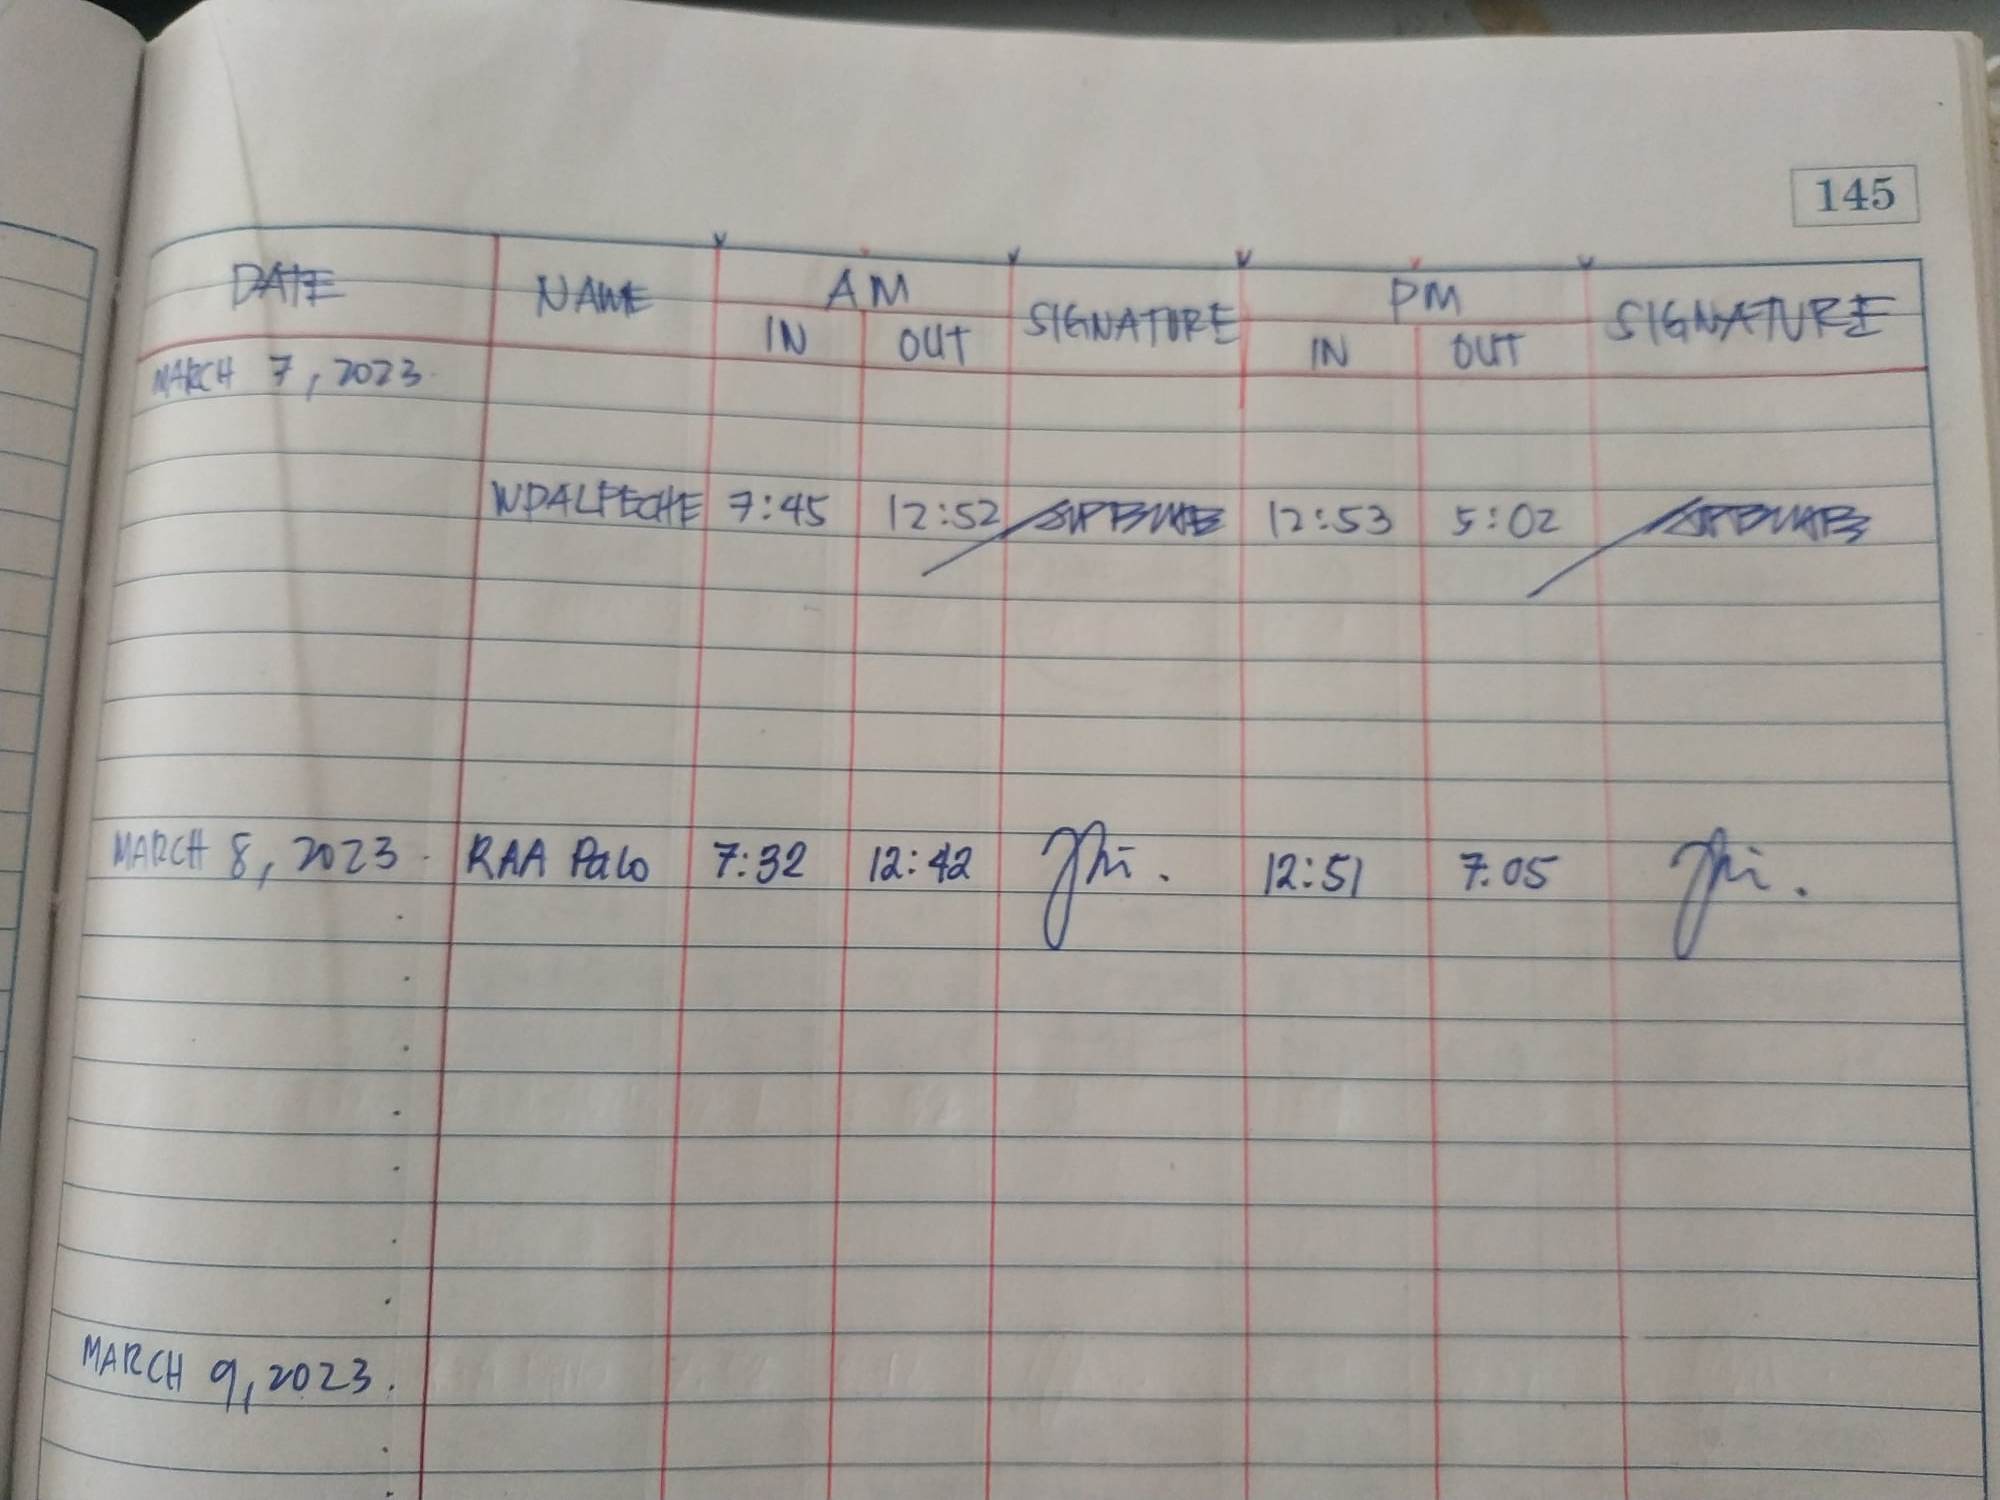 145
DATE NAME AM SIGNATURE PM SIGNATURE
IN OUT IN OUT
MARCH 7, 2023
WDALPECHE 7:45 12:52 12:53 5:02
MARCH 8, 2023 RAA Palo 7:32 12:42 12:51 7:05
MARCH 9, 2023